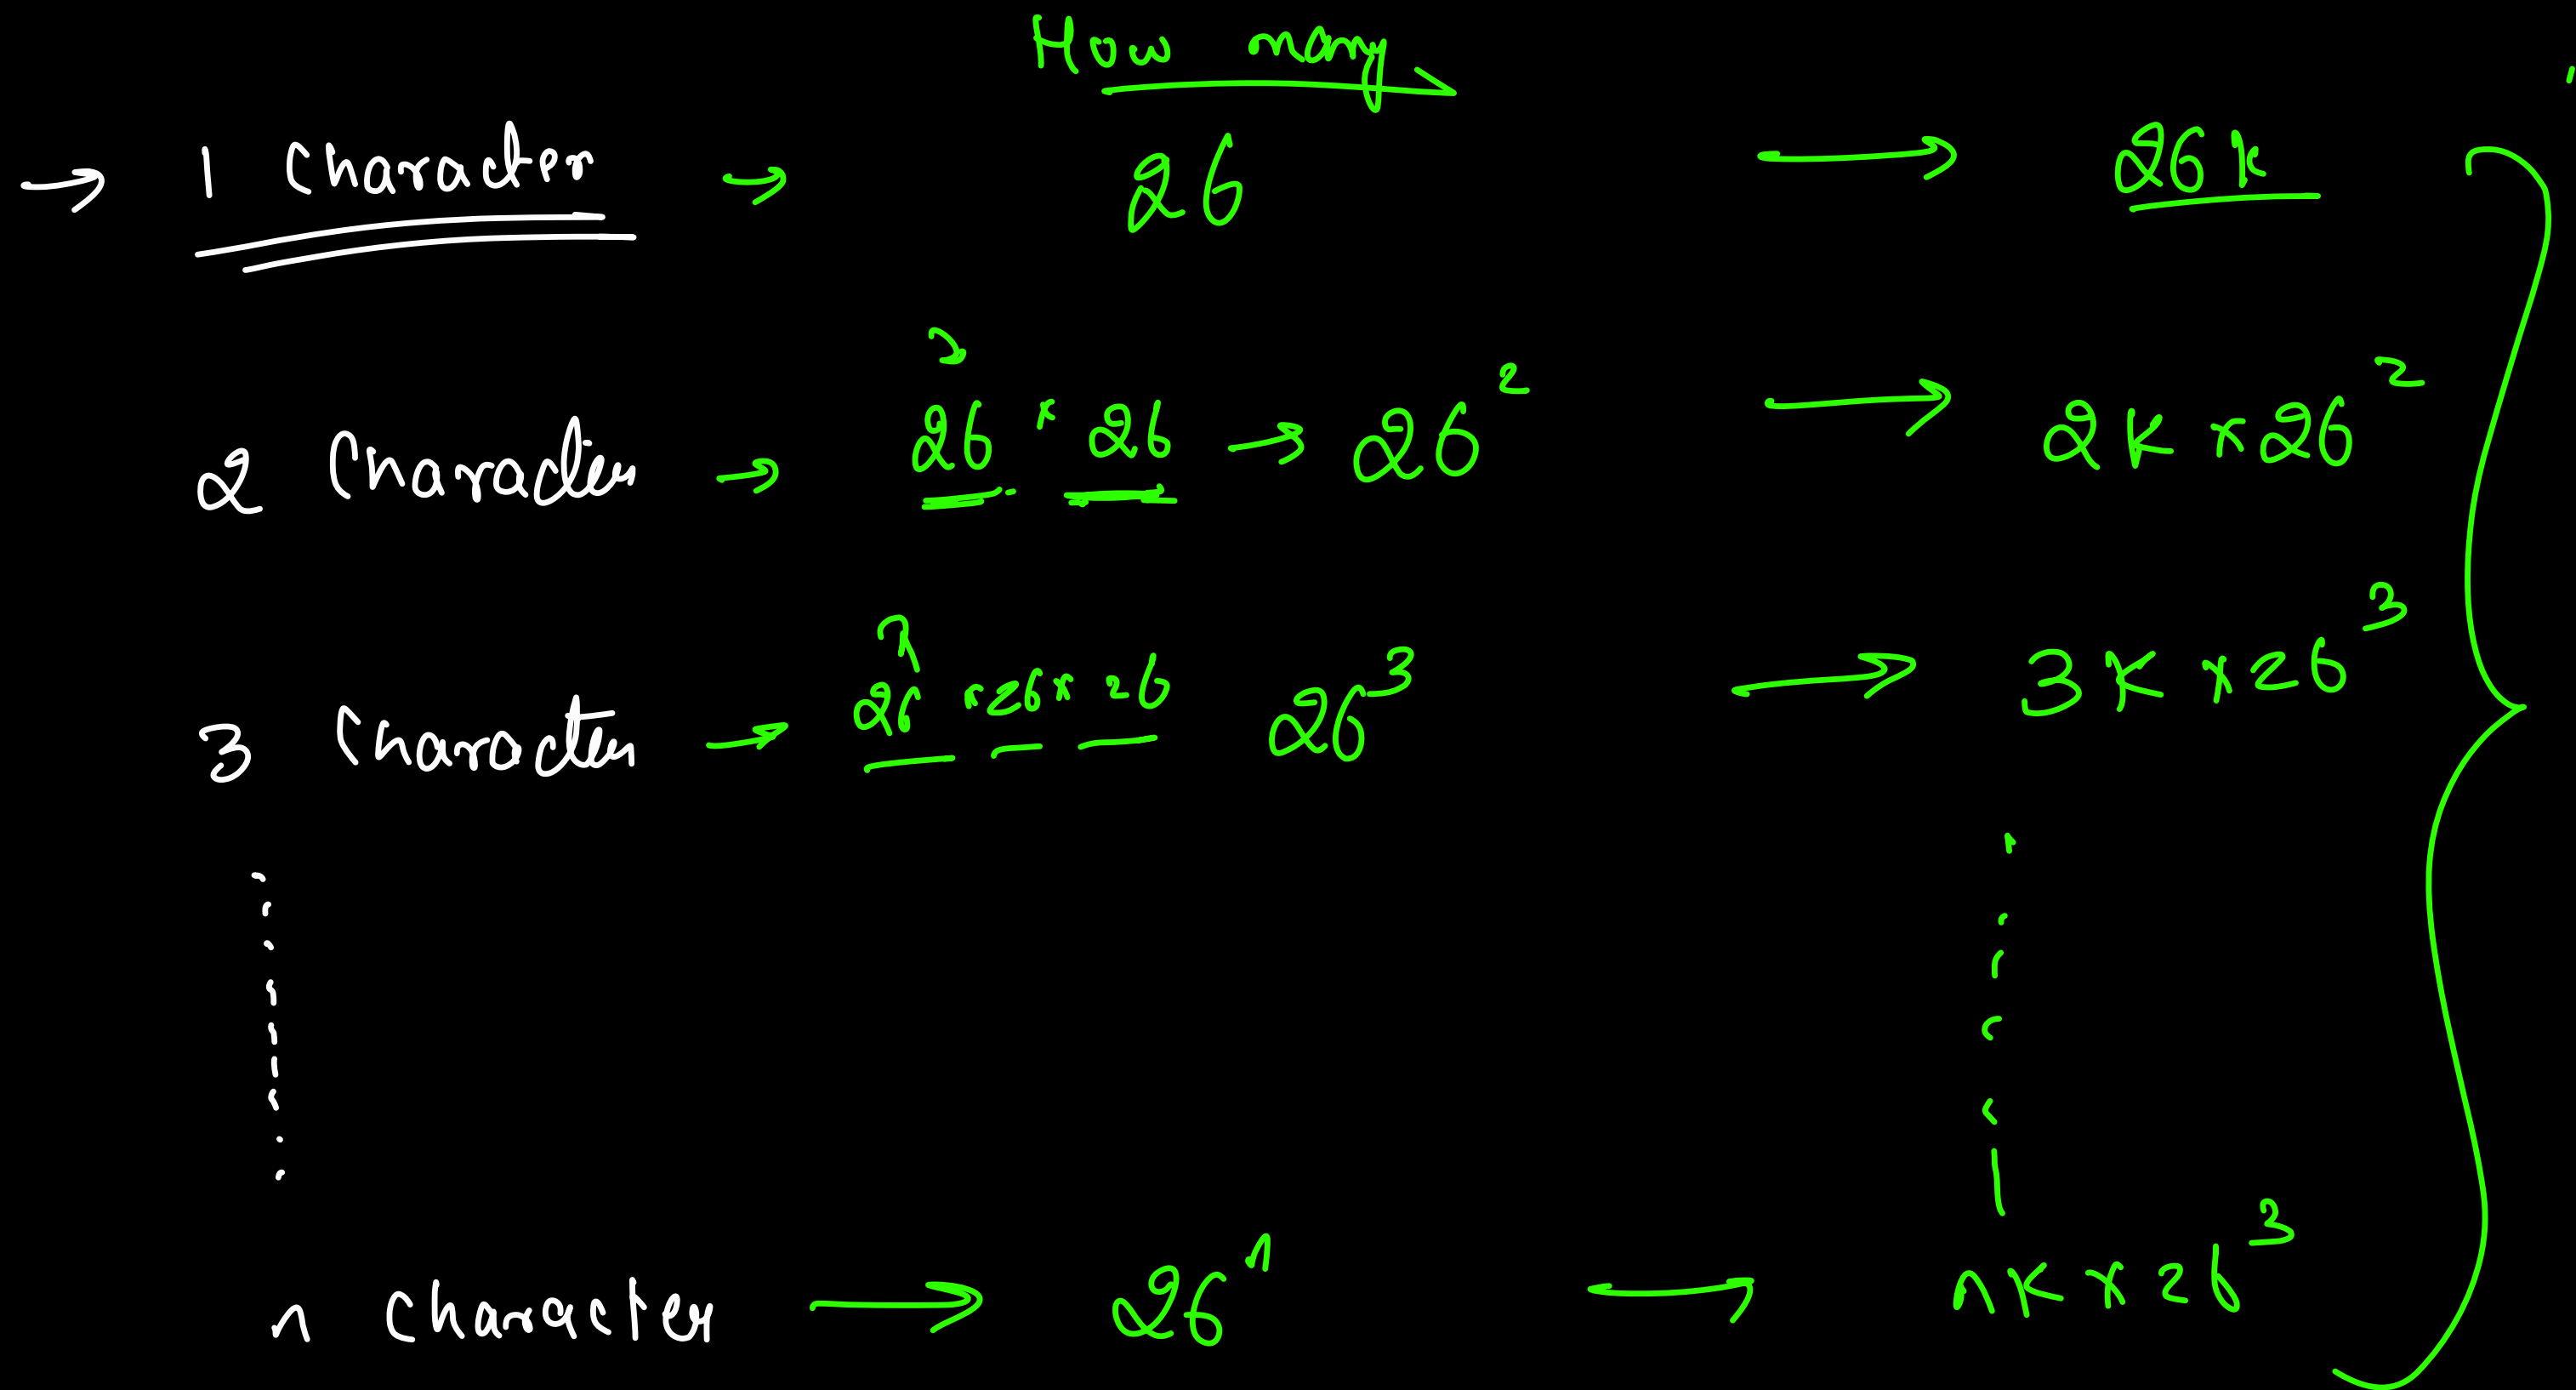 How many
→ 1 Character → 26 → 26k
2 Character → 26 × 26 → 26² → 2k × 26²
3 Character → 26 × 26 × 26 26³ → 3k × 26³
n character → 26ⁿ → nk × 26³